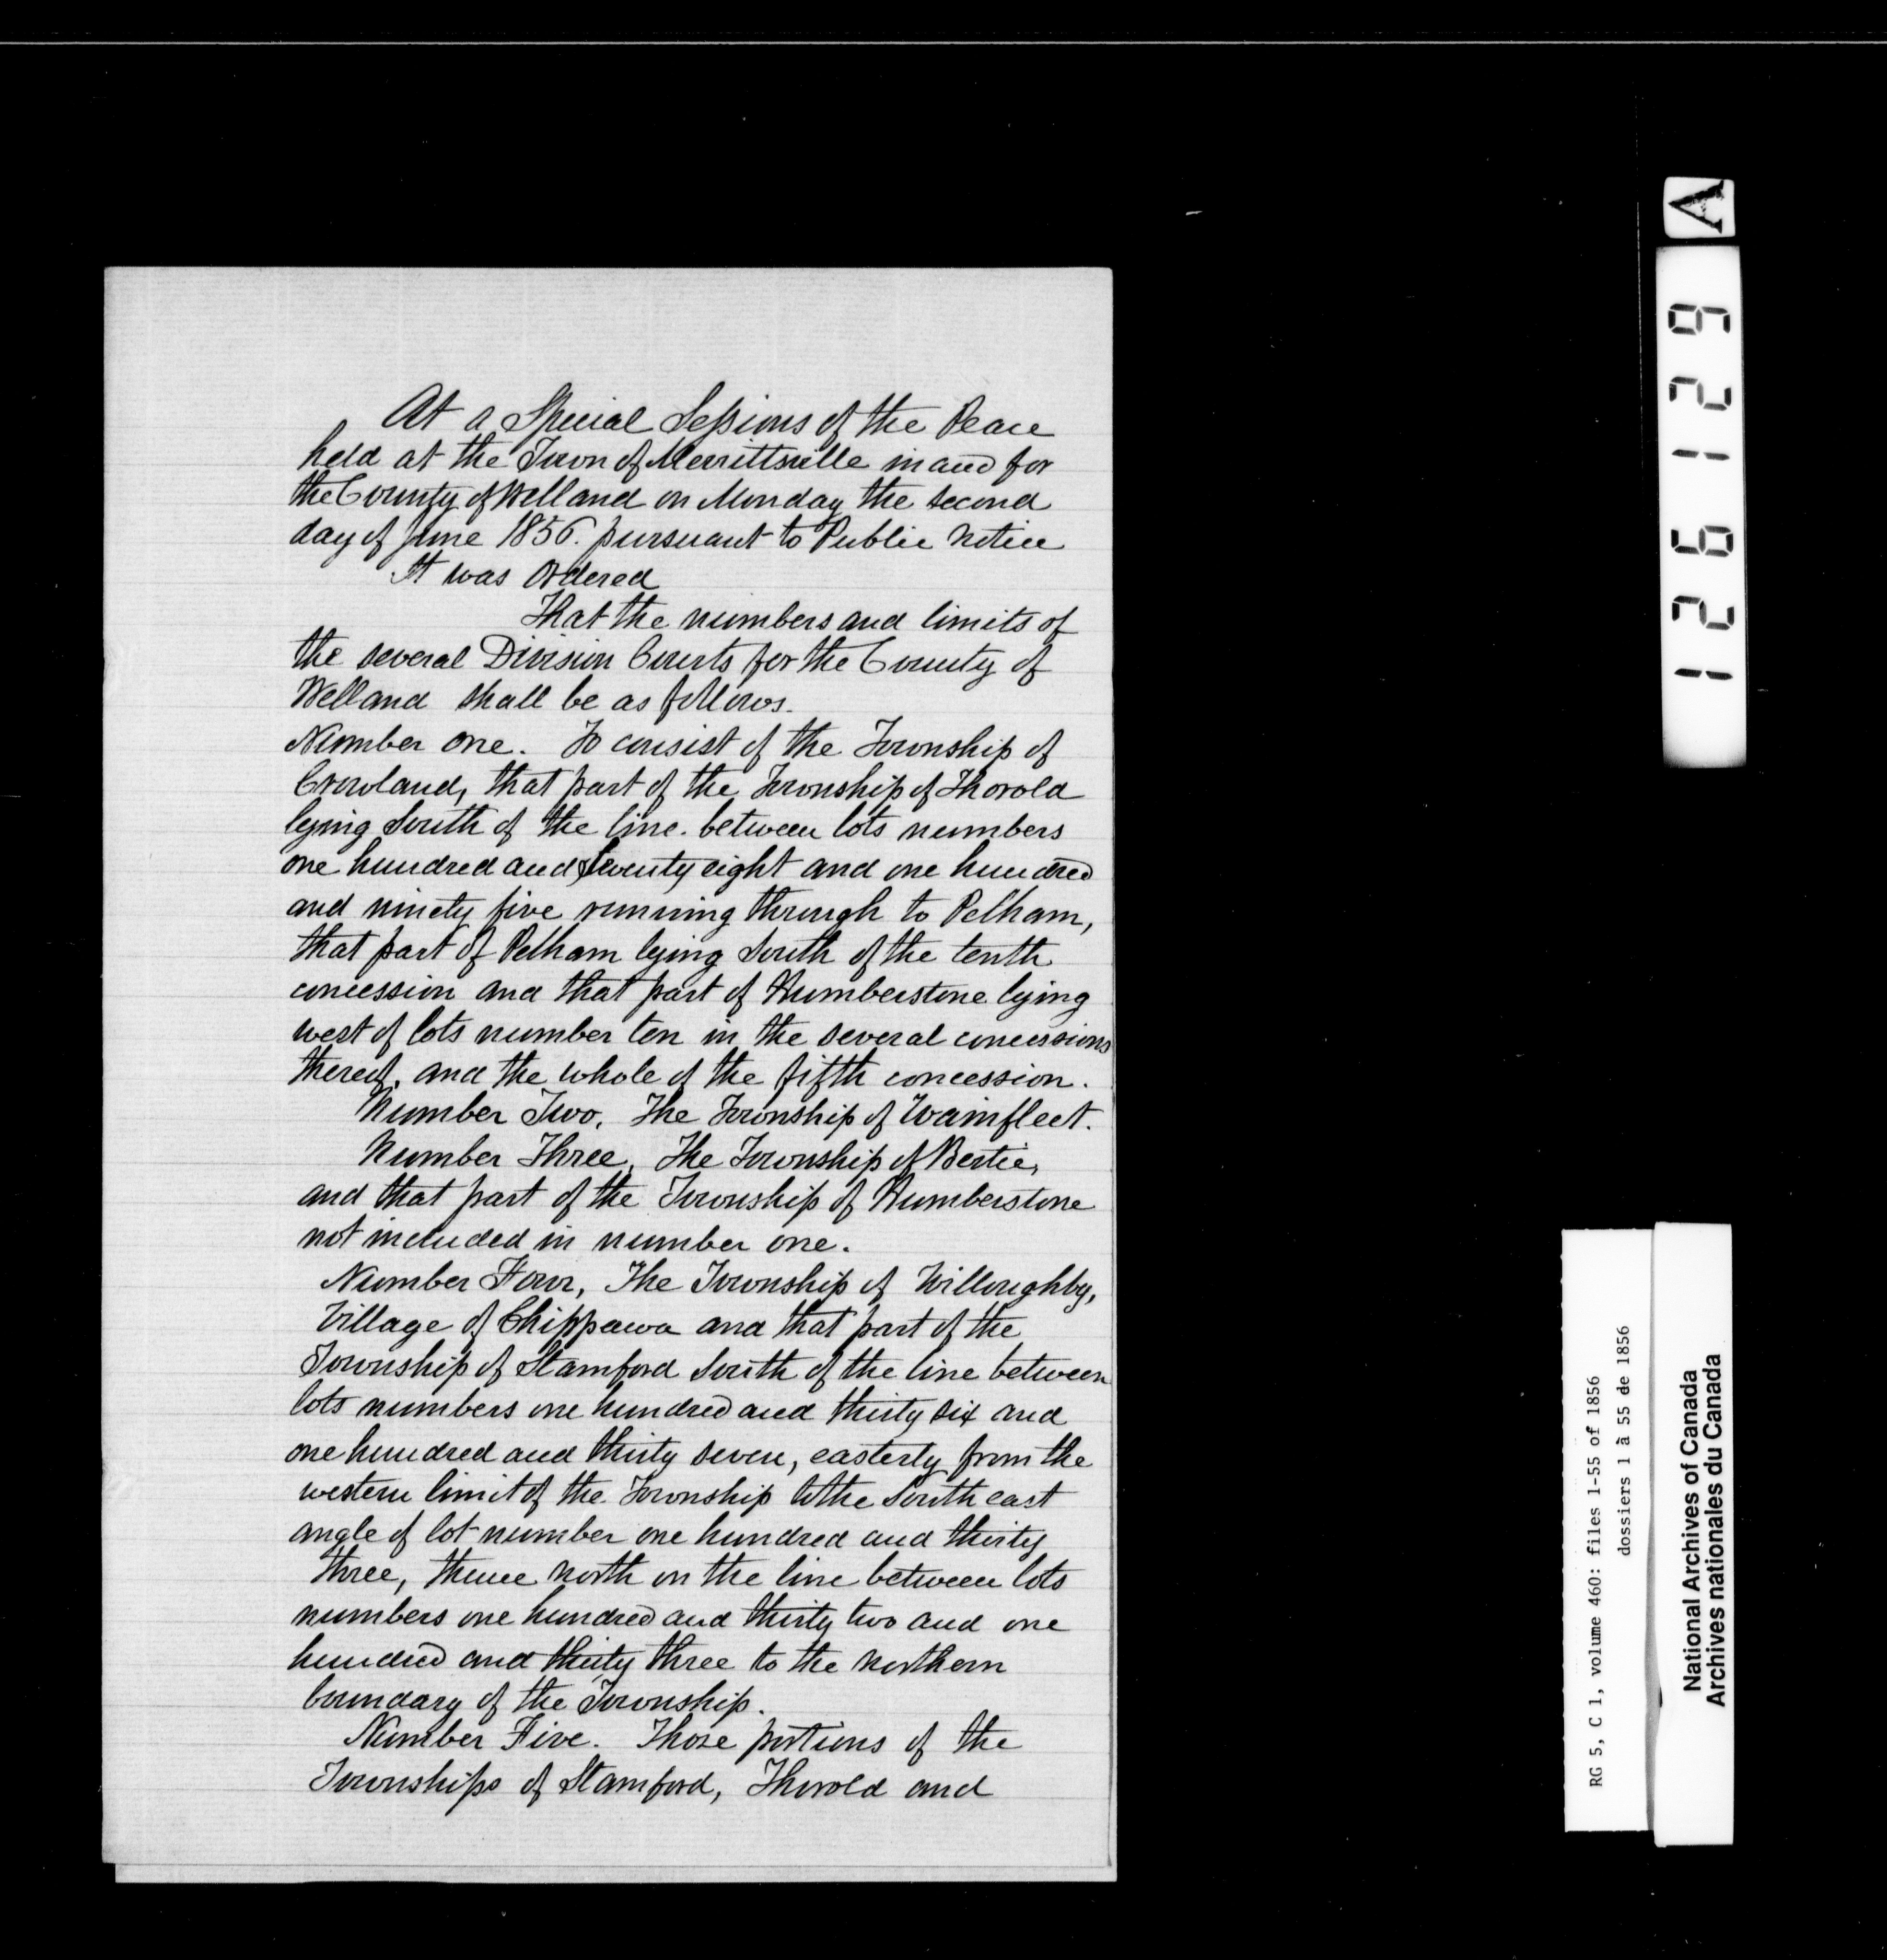 At a Special Sessions of the Peace
held at the Town of Merrittsville in and for
the County of Welland on Monday the second
day of June 1856. pursuant to Public notice
It was Ordered
That the numbers and limits of
the several Division Courts for the County of
Welland shall be as follows.
Number one. To consist of the Township of
Crowland, that part of the Township of Thorold
lying South of the line between lots numbers
one hundred and seventy eight and one hundred
and ninety five running through to Pelham,
that part of Pelham lying South of the tenth
concession and that part of Humberstone lying
west of lots number ten in the several concessions
thereof, and the whole of the fifth concession.
Number Two, The Township of Wainfleet.
Number Three, The Township of Bertie,
and that part of the Township of Humberstone
not included in number one.
Number Four, The Township of Willoughby,
Village of Chippawa and that part of the
Township of Stamford South of the line between
lots numbers one hundred and thirty six and
one hundred and thirty seven, easterly from the
western limit of the Township to the South east
angle of lot number one hundred and thirty
three, thence north on the line between lots
numbers one hundred and thirty two and one
hundred and thirty three to the northern
boundary of the Township.
Number Five. Those portions of the
Townships of Stamford, Thorold and
A
126129
RG 5, C 1, volume 460: files 1-55 of 1856
dossiers 1 à 55 de 1856
National Archives of Canada
Archives nationales du Canada